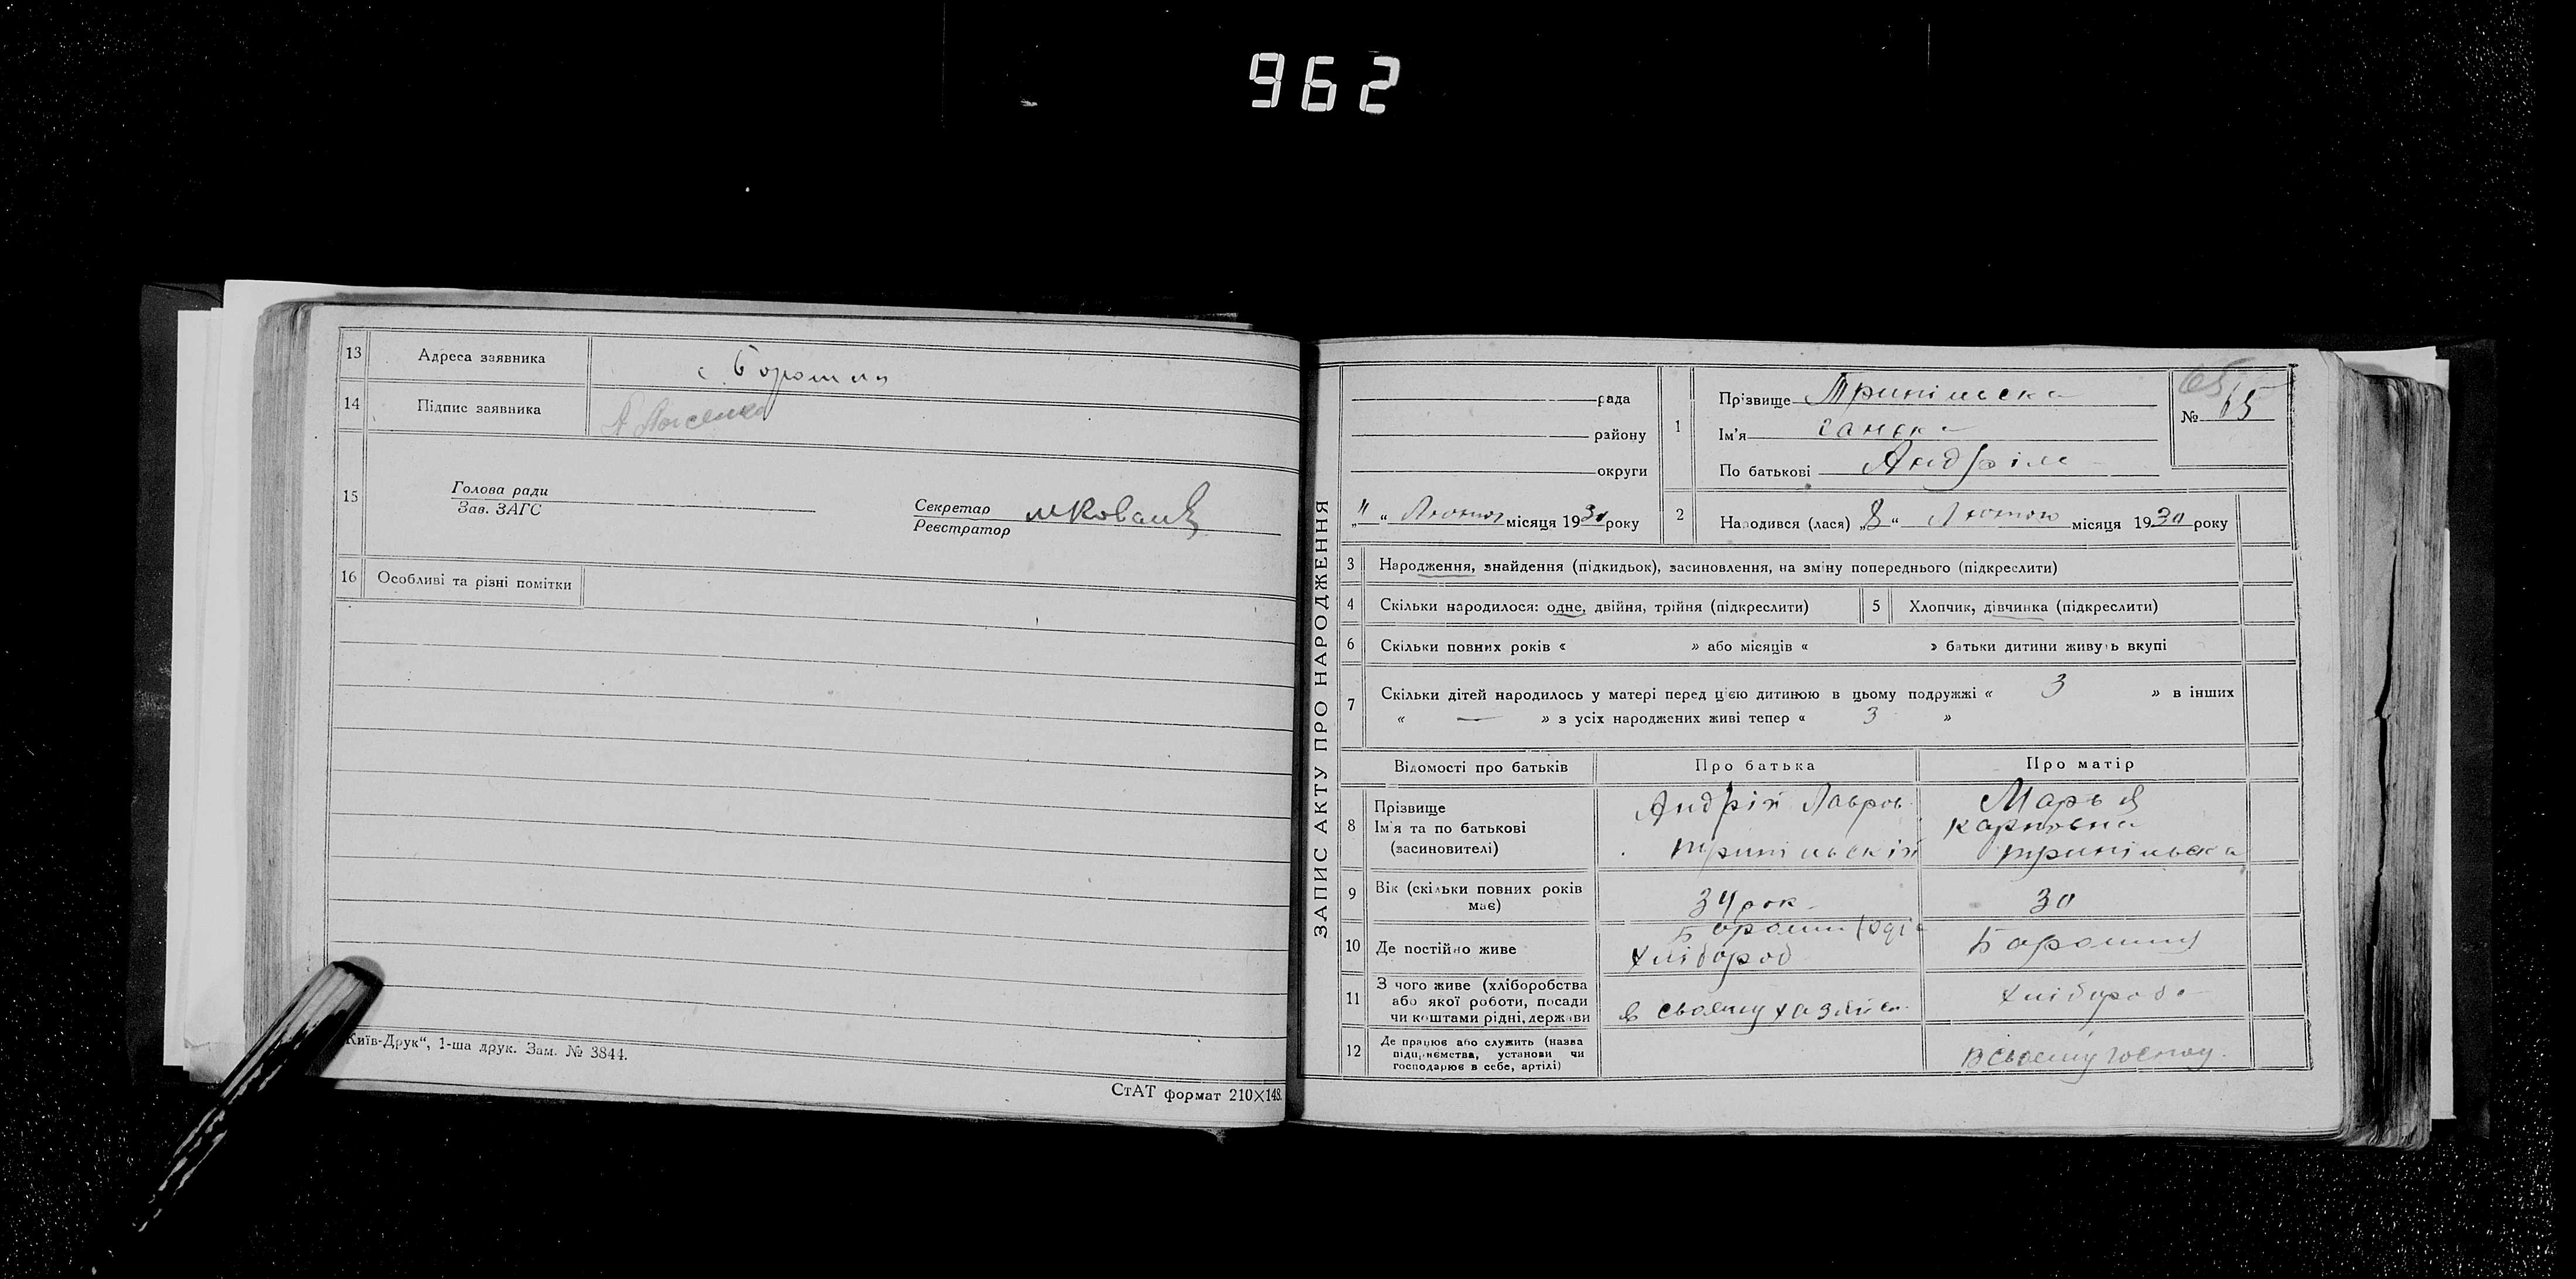 962
13 Адреса заявника с Борошин
14 Підпис заявника
15 Голова ради
Зав. ЗАГС
Секретар
Реєстратор
16 Особливі та різні помітки
Київ-Друк“, 1-ша друк. Зам. № 3844.
СтАТ формат 210×148.
ЗАПИС АКТУ ПРО НАРОДЖЕННЯ
рада
району
округи
„11“ Лютого місяця 1930 року
1 Прізвище Трипільска
Ім'я Ганька
По батькові Андріїв
65
№ 65
2 Народився (лася) „8“ Лютого місяця 1930 року
3 Народження, знайдення (підкидьок), засиновлення, на зміну попереднього (підкреслити)
4 Скільки народилося: одне, двійня, трійня (підкреслити) 5 Хлопчик, дівчинка (підкреслити)
6 Скільки повних років « » або місяців « » батьки дитини живуть вкупі
7 Скільки дітей народилось у матері перед цією дитиною в цьому подружжі « 3 » в інших
« — » з усіх народжених живі тепер « 3 »
Відомості про батьків Про батька Про матір
8 Прізвище
Ім'я та по батькові
(засиновителі)
Андрій Лавров
Трипільскій
Марья
Карповна
Трипільска
9 Вік (скільки повних років
має)
34 рок 30
10 Де постійно живе
Хлібороб
11 З чого живе (хліборобства
або якої роботи, посади
чи коштами рідні, держави
в своему хазяйс
Хлібороб
12 Де працює або служить (назва
підприємства, установи чи
господарює в себе, артілі)
В своему господ.